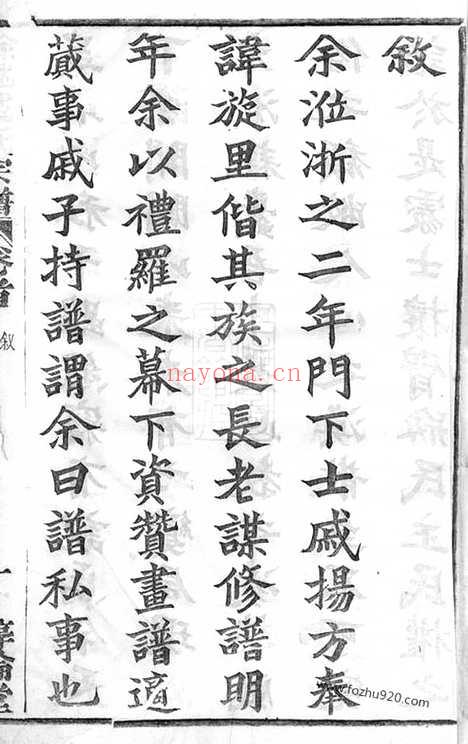 敘
余涖浙之二年門下士戚揚方奉
諱旋里偕其族之長老謀修譜明
年余以禮羅之幕下資贊畫譜適
蕆事戚子持譜謂余曰譜私事也
宗譜
序
敘
一
nayona.cn
www.fozhu920.com